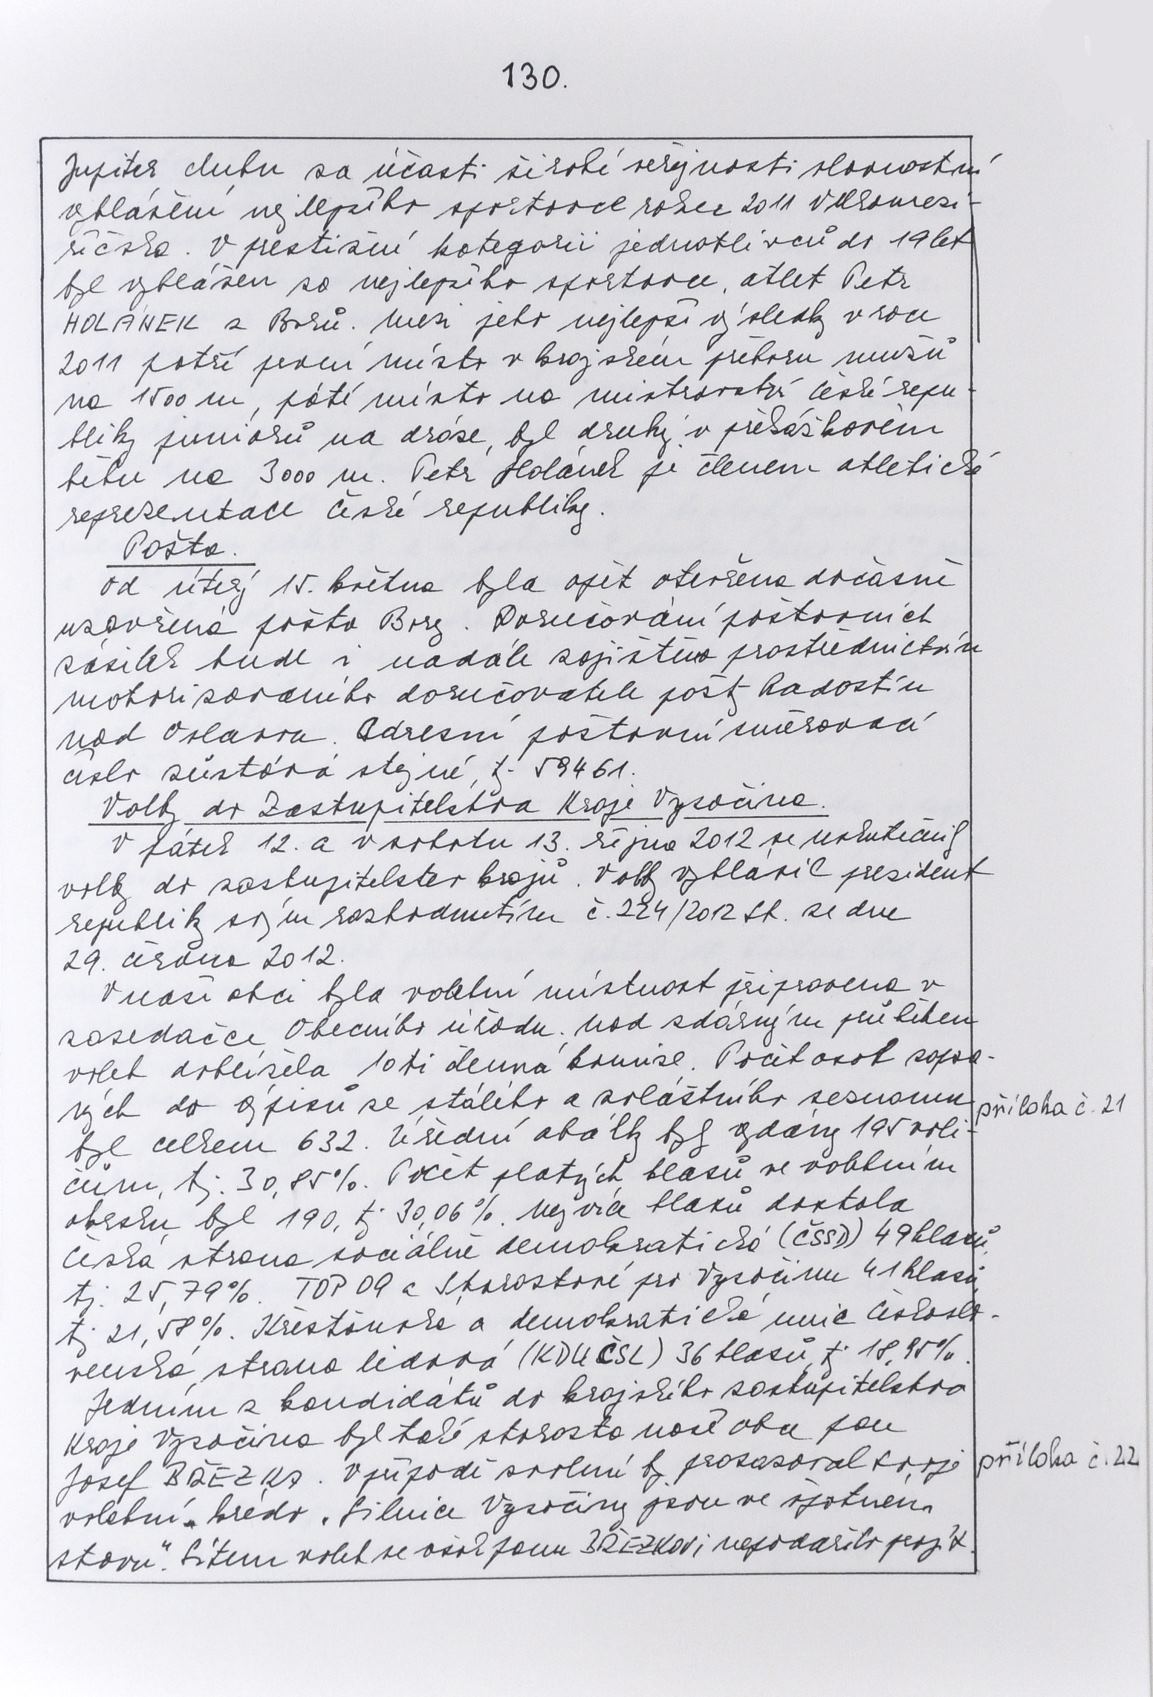 130.
Jupiter clubu za účasti široké veřejnosti slavnostní
vyhlášení nejlepšího sportovce roku 2011 Velkomezi-
říčska. V prestižní kategorii jednotlivců do 19 let
byl vyhlášen za nejlepšího sportovce, atlet Petr
HOLÁNEK z Borů. Mezi jeho nejlepší výsledky v roce
2011 patří první místo v krajském přeboru mužů
na 1500 m, páté místo na mistrovství České repu-
bliky juniorů na dráze, byl druhý v překážkovém
běhu na 3000 m. Petr Holánek je členem atletické
reprezentace České republiky.
Pošta.
Od úterý 15. května byla opět otevřena dočasně
uzavřená pošta Bory. Doručování poštovních
zásilek bude i nadále zajištěno prostřednictvím
motorizovaného doručovatele pošty Radostín
nad Oslavou. Adresní poštovní směrovací
číslo zůstává stejné, tj. 59461.
Volby do Zastupitelstva Kraje Vysočina.
V pátek 12. a v sobotu 13. října 2012 se uskutečnily
volby do zastupitelstev krajů. Volby vyhlásil president
republiky svým rozhodnutím č. 224/2012 Sb. ze dne
29. června 2012.
V naší obci byla volební místnost připravena v
zasedačce Obecního úřadu. Nad zdárným průběhem
voleb dohlížela 10ti členná komise. Počet osob zapsa-
ných do výpisů ze stálého a zvláštního seznamu
příloha č. 21
byl celkem 632. Úřední obálky byly vydány 195 voli-
čům, tj. 30,85%. Počet platných hlasů ve volebním
okrsku byl 190, tj. 30,06%. Nejvíce hlasů dostala
Česká strana sociálně demokratická (ČSSD) 49 hlasů,
tj. 25,79%. TOP 09 a Starostové pro Vysočinu 41 hlasů
tj. 21,58%. Křesťanská a demokratická unie Českoslo-
venská strana lidová (KDU ČSL) 36 hlasů, tj. 18,95%.
Jedním z kandidátů do krajského zastupitelstva
Kraje Vysočina byl také starosta naší obce pan
Josef BŘEZKA. V případě zvolení by prosazoval svoje
příloha č. 22
volební „krédo „Silnice Vysočiny jsou ve špatném
stavu“. Sítem voleb se však panu BŘEZKOVI nepodařilo projít.